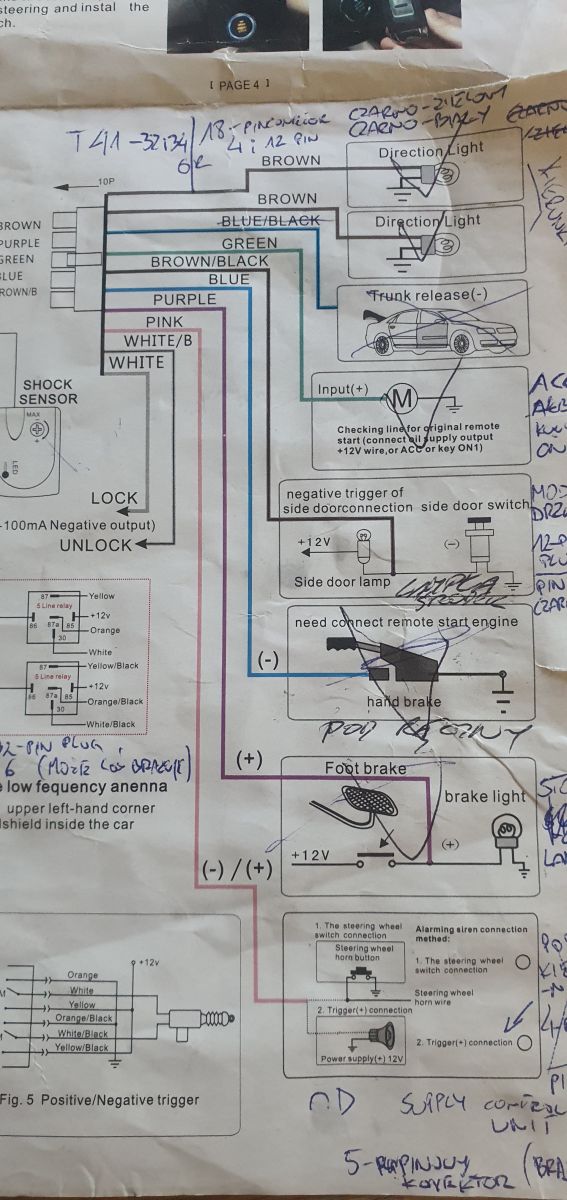 steering and instal the
ch.
[ PAGE 4 ]
CZARNO-ZIELONY
CZARNO-BIAŁY
18-PIN
4 i 12 PIN
10P
BROWN
Direction Light
BROWN
Direction Light
BLUE/BLACK
GREEN
BROWN/BLACK
BLUE
PURPLE
PINK
WHITE/B
WHITE
BROWN
PURPLE
GREEN
BLUE
ROWN/B
Trunk release(-)
Input(+)
M
Checking line for original remote
start (connect oil supply output
+12V wire,or ACC or key ON1)
SHOCK
SENSOR
MAX
+
LED
LOCK
-100mA Negative output)
UNLOCK
negative trigger of
side doorconnection
side door switch
+12V
(-)
Side door lamp
12-P
PIN
87
Yellow
5 Line relay
+12v
86
87a
85
Orange
30
White
87
Yellow/Black
5 Line relay
+12v
86
87a
85
Orange/Black
30
White/Black
need connect remote start engine
(-)
hand brake
POD
-PIN PLUG
6
e low fequency anenna
upper left-hand corner
dshield inside the car
(+)
Foot brake
brake light
+12V
(+)
(-) / (+)
1. The steering wheel
switch connection
Steering wheel
horn button
Steering wheel
horn wire
2. Trigger(+) connection
Power supply(+) 12V
Alarming siren connection
methed:
1. The steering wheel
switch connection
2. Trigger(+) connection
+12v
Orange
White
Yellow
Orange/Black
White/Black
Yellow/Black
M
M
Fig. 5 Positive/Negative trigger
SUPPLY CONTROL
UNIT
5-
KONEKTOR